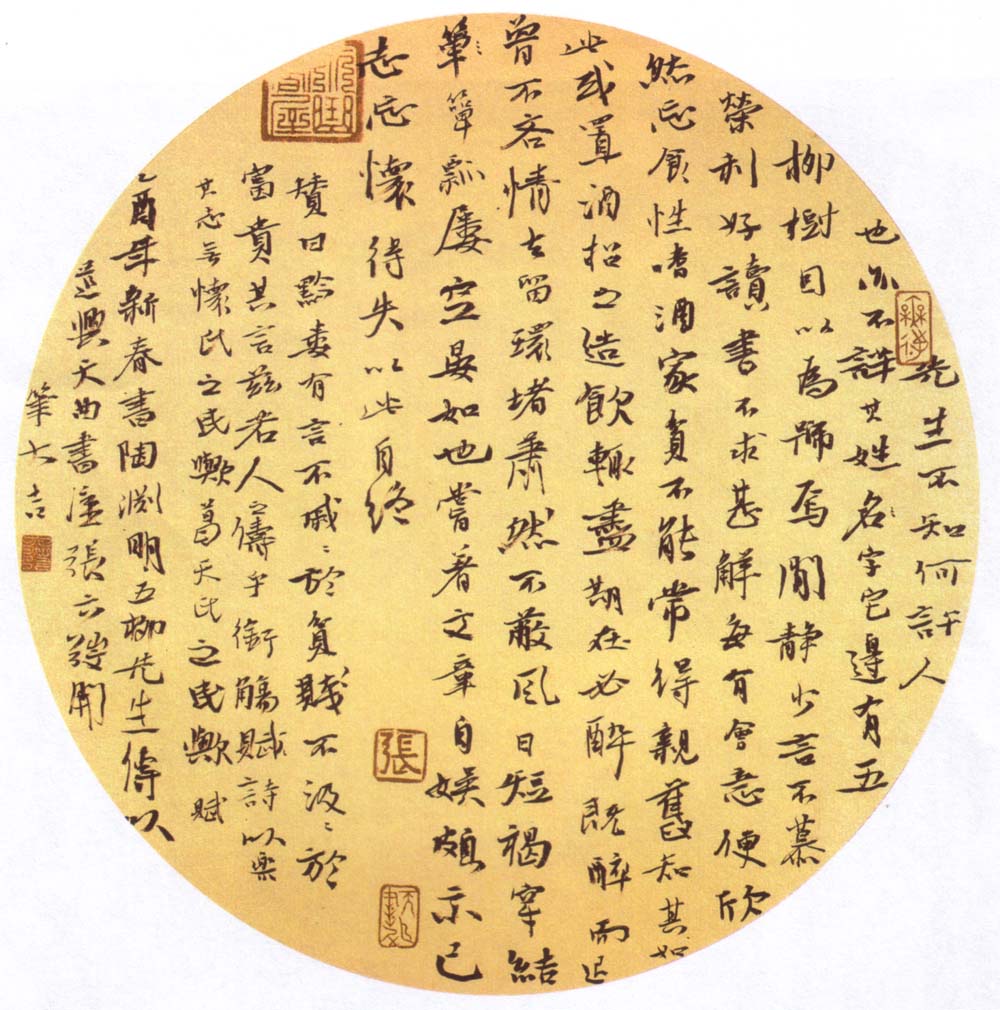 先生不知何許人
也亦不詳其姓名字宅邊有五
柳樹因以為號焉閒靜少言不慕
榮利好讀書不求甚解每有會意便欣
然忘食性嗜酒家貧不能常得親舊知其如
此或置酒招之造飲輒盡期在必醉既醉而退
曾不吝情去留環堵蕭然不蔽風日短褐穿結
簞簞瓢屢空晏如也嘗著文章自娛頗示己
志忘懷得失以此自終
贊曰黔婁有言不戚〻於貧賤不汲〻於
富貴其言茲若人之儔乎銜觴賦詩以樂
其志無懷氏之民歟葛天氏之民歟賦
乙酉年新春書陶淵明五柳先生傳以
興天曲書廬張六開
筆大吉
張